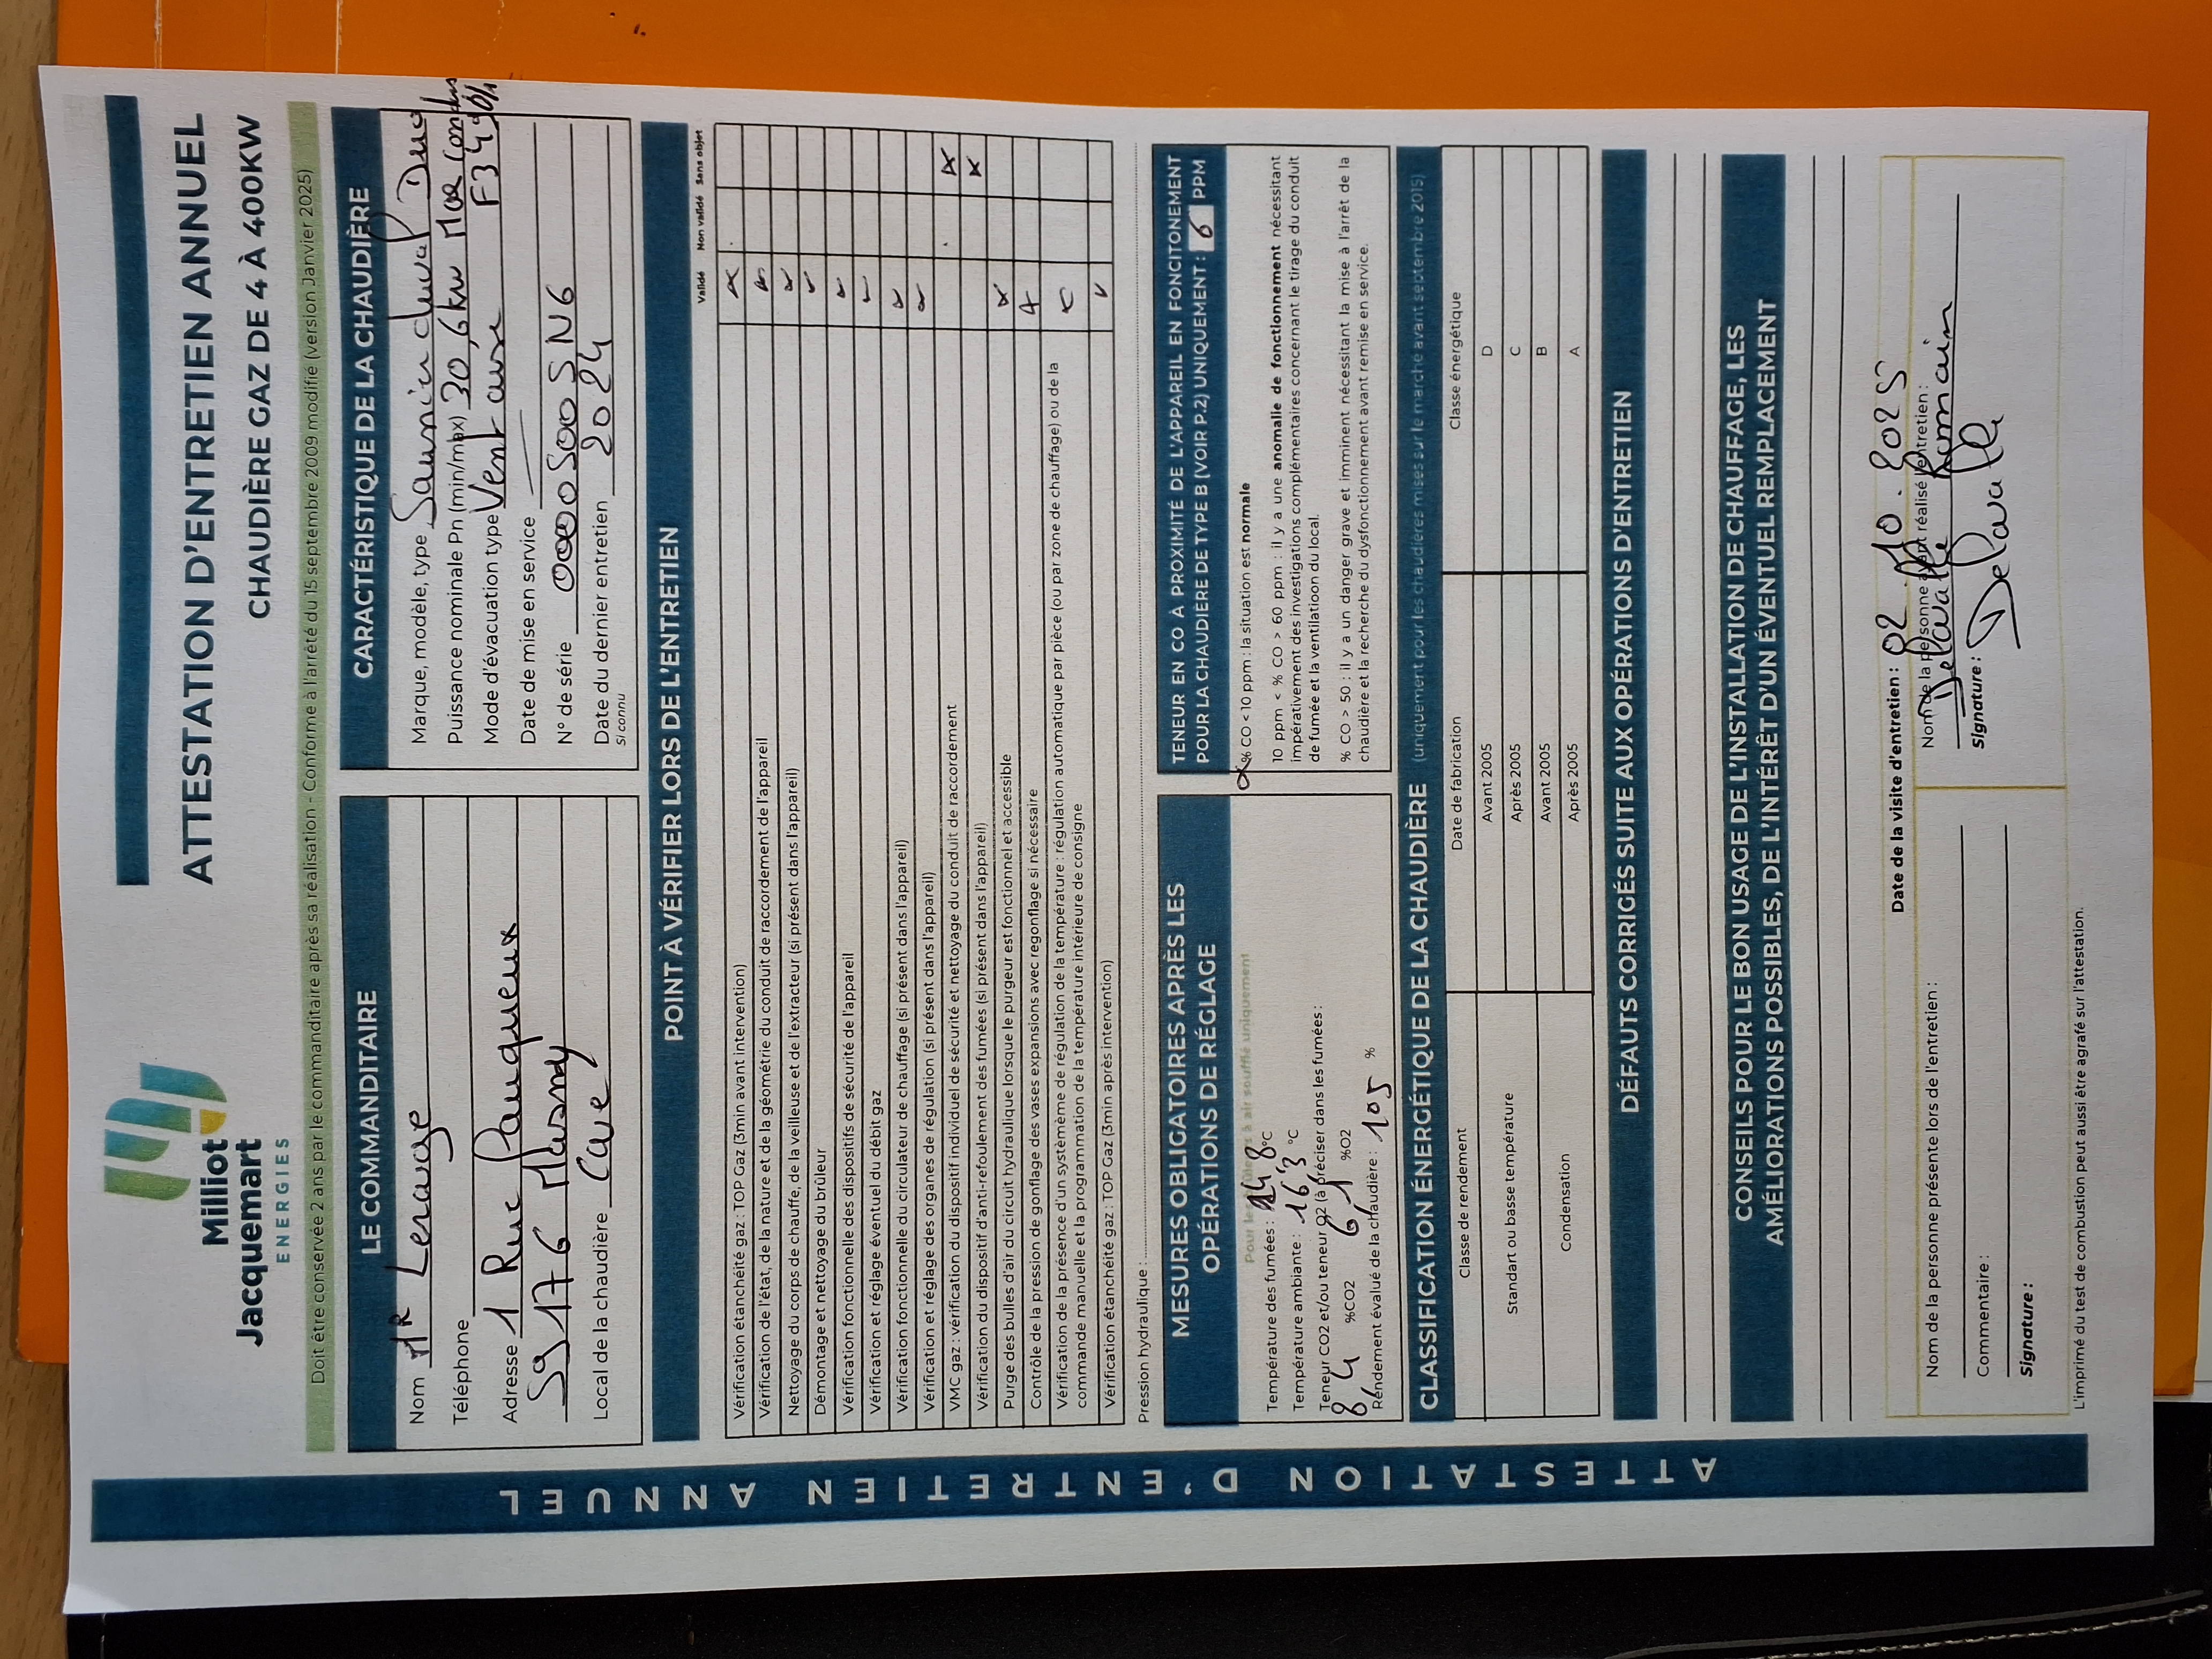 Milliot
Jacquemart
ENERGIES
ATTESTATION D'ENTRETIEN ANNUEL
CHAUDIÈRE GAZ DE 4 À 400KW
Doit être conservée 2 ans par le commanditaire après sa réalisation - Conforme à l'arrêté du 15 septembre 2009 modifié (version Janvier 2025)
ATTESTATION D'ENTRETIEN ANNUEL
LE COMMANDITAIRE
Nom MR Lerouge
Téléphone
Adresse 1 Rue
59176 Masny
Local de la chaudière Cave
CARACTÉRISTIQUE DE LA CHAUDIÈRE
Marque, modèle, type Saunier duval Duo
Puissance nominale Pn (min/max) 30,6kw Max
Mode d'évacuation type Ventouse F34
Date de mise en service
N° de série
Date du dernier entretien 2024
Si connu
POINT À VÉRIFIER LORS DE L'ENTRETIEN
Validé Non validé Sans objet
Vérification étanchéité gaz : TOP Gaz (3min avant intervention)
Vérification de l'état, de la nature et de la géométrie du conduit de raccordement de l'appareil
Nettoyage du corps de chauffe, de la veilleuse et de l'extracteur (si présent dans l'appareil)
Démontage et nettoyage du brûleur
Vérification fonctionnelle des dispositifs de sécurité de l'appareil
Vérification et réglage éventuel du débit gaz
Vérification fonctionnelle du circulateur de chauffage (si présent dans l'appareil)
Vérification et réglage des organes de régulation (si présent dans l'appareil)
VMC gaz : vérification du dispositif individuel de sécurité et nettoyage du conduit de raccordement
Vérification du dispositif d'anti-refoulement des fumées (si présent dans l'appareil)
Purge des bulles d'air du circuit hydraulique lorsque le purgeur est fonctionnel et accessible
Contrôle de la pression de gonflage des vases expansions avec regonflage si nécessaire
Vérification de la présence d'un systèmème de régulation de la température : régulation automatique par pièce (ou par zone de chauffage) ou de la
commande manuelle et la programmation de la température intérieure de consigne
Vérification étanchéité gaz : TOP Gaz (3min après intervention)
Pression hydraulique :
MESURES OBLIGATOIRES APRÈS LES
OPÉRATIONS DE RÉGLAGE
Température des fumées : °C
Température ambiante : 16,3 °C
Teneur CO2 et/ou teneur O2 (à préciser dans les fumées) :
8,4 %CO2 6,1 %O2
Rendement évalué de la chaudière : 105 %
TENEUR EN CO À PROXIMITÉ DE L'APPAREIL EN FONCITONEMENT
POUR LA CHAUDIERE DE TYPE B (VOIR P.2) UNIQUEMENT : 6 PPM
% CO < 10 ppm : la situation est normale
10 ppm < % CO > 60 ppm : il y a une anomalie de fonctionnement nécessitant
impérativement des investigations complémentaires concernant le tirage du conduit
de fumée et la ventilatioon du local.
% CO > 50 : il y a un danger grave et imminent nécessitant la mise à l'arrêt de la
chaudière et la recherche du dysfonctionnement avant remise en service.
CLASSIFICATION ÉNERGÉTIQUE DE LA CHAUDIÈRE (uniquement pour les chaudières mises sur le marché avant septembre 2015)
Classe de rendement Date de fabrication Classe énergétique
Standart ou basse température Avant 2005 D
Après 2005 C
Condensation Avant 2005 B
Après 2005 A
DÉFAUTS CORRIGÉS SUITE AUX OPÉRATIONS D'ENTRETIEN
CONSEILS POUR LE BON USAGE DE L'INSTALLATION DE CHAUFFAGE, LES
AMÉLIORATIONS POSSIBLES, DE L'INTÉRÊT D'UN ÉVENTUEL REMPLACEMENT
Date de la visite d'entretien : 02.10.2025
Nom de la personne présente lors de l'entretien :
Commentaire :
Signature :
Nom de la personne ayant réalisé l'entretien :
Delavalle Romain
Signature : Delavalle
L'imprimé du test de combustion peut aussi être agrafé sur l'attestation.